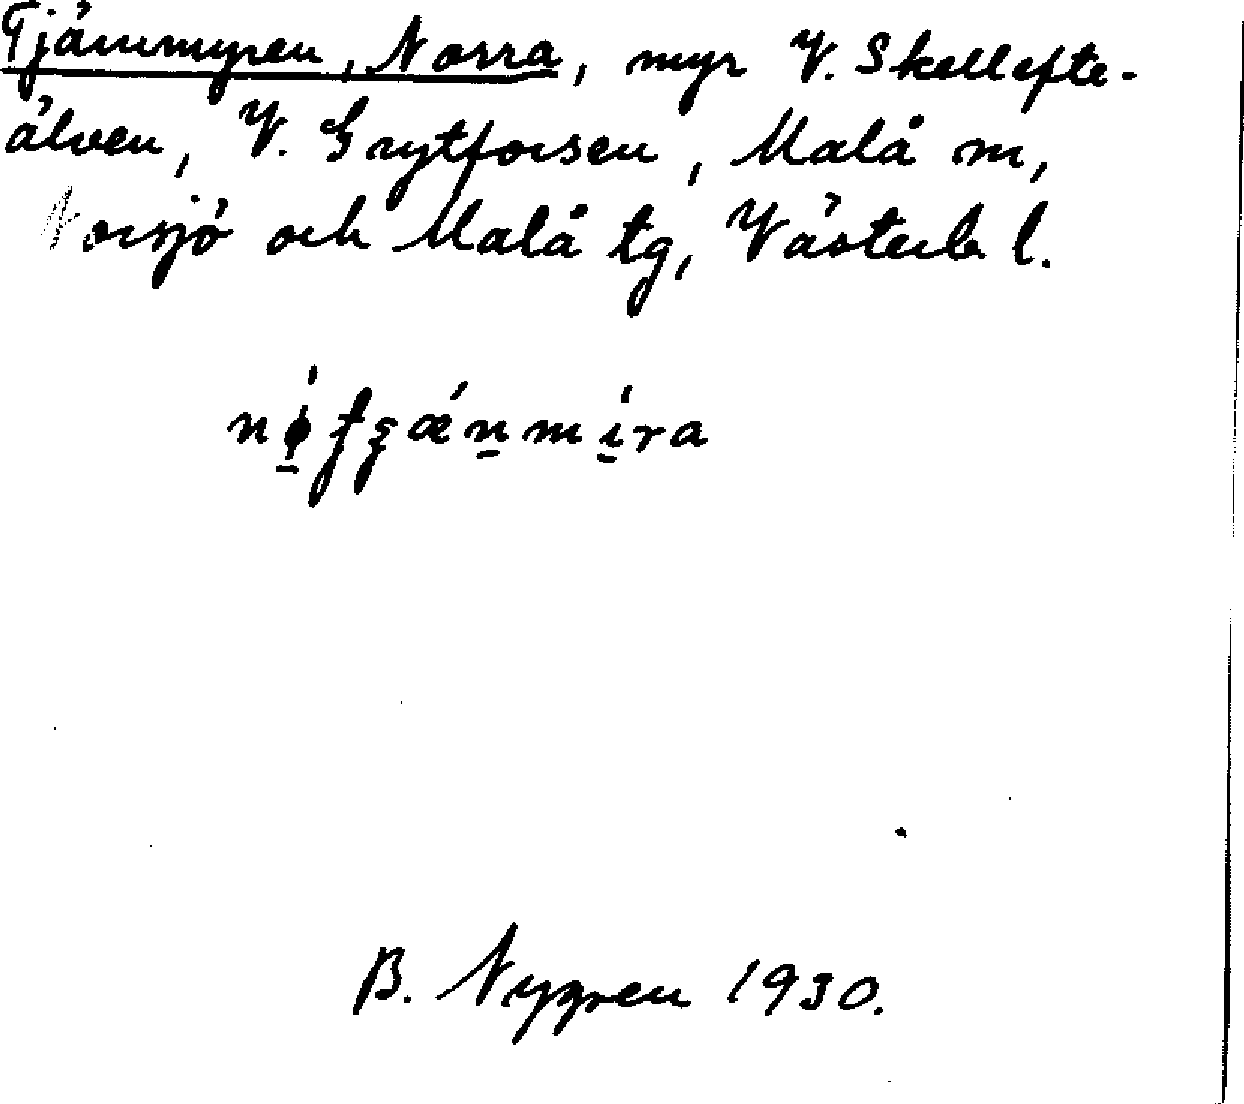 Tjärnmyren, Norra, myr V. Skellefte-
älven, V. Grytforsen, Malå m,
Norsjö och Malå tg, Västerb l.
B. Nygren 1930.